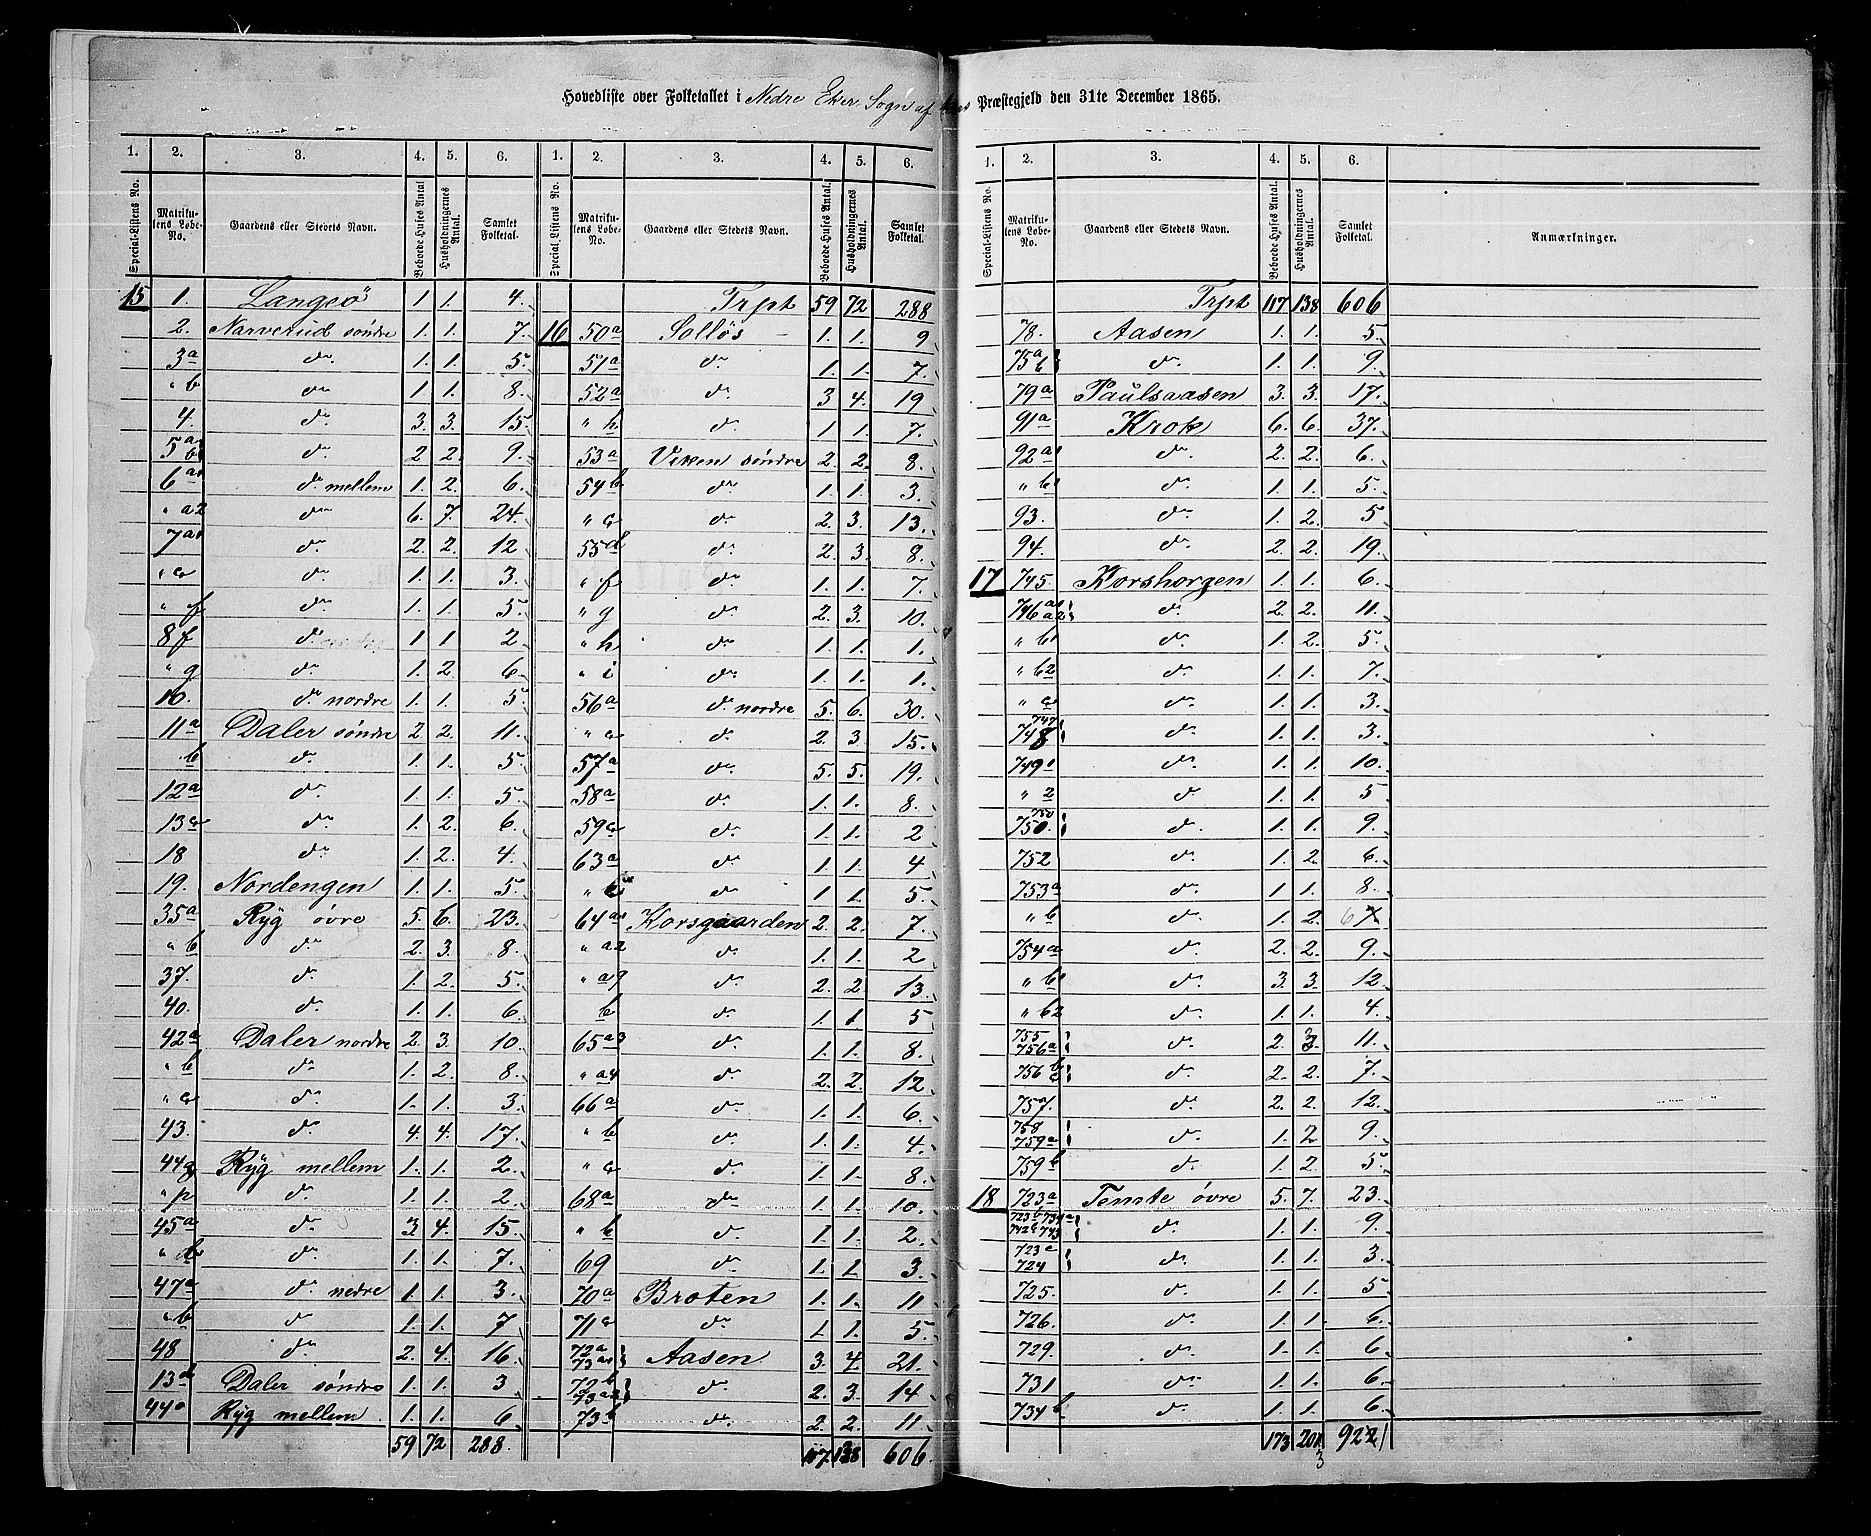 Hovedliste over Folketallet i Nedre Eker Sogn af Præstegjeld den 31te December 1865.
1. 2. 3. 4. 5. 6. 1. 2. 3. 4. 5. 6. 1. 2. 3. 4. 5. 6.
Special-Listens No. Matrikulens Løbe-No. Gaardens eller Stedets Navn. Beboede Huses Antal Husholdningernes Antal. Samlet Folketal. Special Listens No. Matrikulens Løbe-No. Gaardens eller Stedets Navn. Beboede Huses Antal Husholdningernes Antal. Samlet Folketal. Special-Listens No. Matrikulens Løbe-No. Gaardens eller Stedets Navn. Beboede Huses Antal. Husholdningernes Antal. Samlet Folketal. Anmærkninger.
15 1. Langsö 1. 1. 4.
2. Narverud søndre 1. 1. 7.
3a do. 1. 1. 5.
" b do 1. 1 8.
4. do. 3. 3. 15.
5 a b do. 2 2. 9.
6a1 do. mellem 1. 2. 6.
" a2 do 6. 7. 24.
7a1 do. 2. 2. 12
" c do. 1. 1. 3.
" f do. 1. 1. 5.
8f do. 1. 1 2
" g do. 1. 2. 6.
10. do. nordre 1. 1. 5.
11a Daler søndre 2 2. 11.
b do. 1. 1. 5.
12a do. 1. 1. 5.
13c do. 1. 2. 6.
18 do. 1. 2. 4.
19. Nordengen 1. 1. 5.
35a Ryg övre 5. 6. 23.
" b do. 2. 3. 8.
37. do. 1. 2. 5.
40. do. 1. 1. 6.
42a Daler nordre 2. 3. 10.
" b do. 1. 2. 8.
" c do. 1. 1. 3.
43. do. 4. 4. 17.
44g Ryg mellem 1. 1. 2.
" p do. 1. 1. 2.
45a do. 3 4. 15.
" d do. 1. 1. 7.
47a do. nedre 1. 1. 3.
" b do. 1. 1. 7
48 do. 2. 4. 16.
13d Daler søndre 1. 1. 3
44o Ryg mellem 1. 1. 6
59 72 288.
Trpt 59 72 288
16 50a Solløs 1. 1. 9
51a do. 1. 1. 7.
52a do. 3 4. 19
" h do. 1 1. 7.
53a Viken søndre 2. 2. 8.
54b do. 1. 1. 3.
" c do. 2. 3. 13.
55d do. 2. 3. 8.
" f do. 1. 1. 7.
" g do. 2. 3. 10.
" h do. 1. 1. 1.
" i do. 1. 1. 1.
56a do. nordre 5. 6. 30.
" c do. 2. 3 15.
57a do. 5. 5. 19.
58a do. 1. 1. 8.
59c do. 1. 1. 2
63a do 1. 1. 4
" c do. 1 1. 5.
64a1 Korsgaarden 2. 2. 7.
" a2 do. 1. 1. 2
" a9 do. 2. 2. 13.
b do. 1. 1 5
65a3 do. 1. 1. 8.
" a4 do. 2. 2. 12
66a do. 1. 1. 6.
" b do. 1. 1. 4.
" c do. 1. 1. 8.
68a do 1. 1. 10.
" b do. 1. 1. 2.
69 do. 1. 1. 3.
70a Broten 1. 1. 11
71c do. 1. 1. 5.
72a 73a1 Aasen 3. 4. 21.
72b 73a2 do. 2. 3. 14
73b do. 2. 2. 11
117. 138 606.
Trpt 117 138 606
78. Aasen 1. 1. 5.
75 a b do. 1. 1. 9.
79a Paulsaasen 3. 3. 17.
91a Krok 6. 6. 37.
92a1 do. 2. 2. 6.
" b1 do. 1. 1. 5.
93. do. 1. 2. 5
94. do. 2. 2. 19.
17 745. Korshorgen 1. 1. 6.
746 a1 a2 do. 2. 2. 11.
" b1 do. 1. 2. 5.
" b2 do. 1. 1. 7.
" c do. 1. 1. 3.
747 748 do. 1. 1. 3.
749 1 do. 1. 1. 10.
" 2 do 1. 1. 5
750 do. 1. 1. 9.
752 do. 1. 2. 6.
753a do. 1. 1. 8.
" b do. 1. 2. 6 7.
754a do. 2. 2. 9.
" b1 do. 3. 3. 12
" b2 do. 1. 1. 4.
755 756a do. 2. 3. 11.
756 b c do. 2. 2. 7.
757. do. 2. 2. 12.
758 759a do. 1. 2 9.
759b do. 1. 2. 5.
18 723a Temte övre 5. 7. 23.
723b 734a 742b 743 do. 1. 1. 9.
723c 724 do. 1. 1. 3.
725. do. 1. 1. 5
726. do. 1. 1. 6.
729. do. 1. 1. 6.
731 do. 1. 1. 6.
734b do. 1. 1. 6.
173 201 922
3